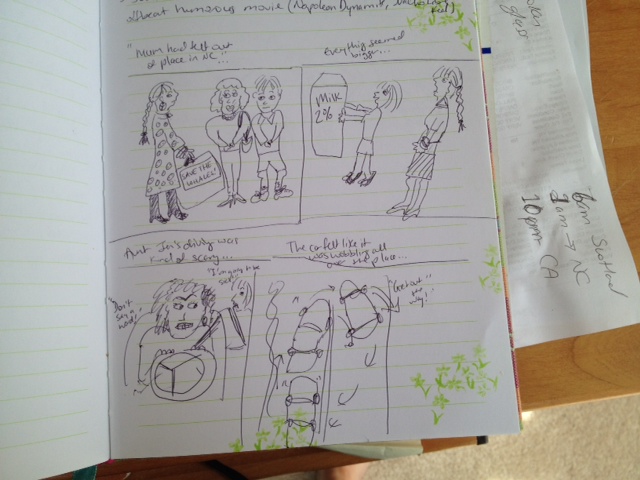 offbeat humorous movie (Napoleon Dynamite,
"Mum had felt out
of place in NC...
Everything seemed
bigger...
Milk
2%
SAVE THE
WHALES!
Aunt Jen's driving was
kind of scary...
The car felt like it
was wobbling all
over the place...
"Don't
say a
word!"
"I'm gonna be
"Get out
the
way!"
glass
6pm Scotland
1pm → NC
10pm CA